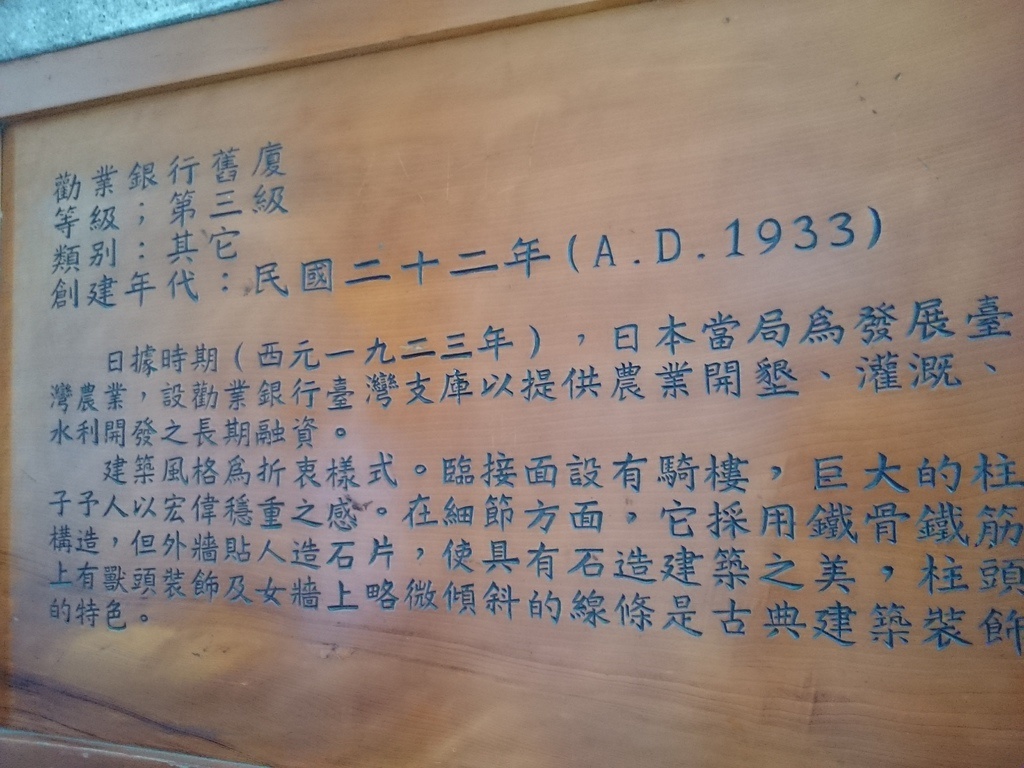 勸業銀行舊廈
等級；第三級
類別：其它
創建年代：民國二十二年(A.D.1933)
日據時期（西元一九二三年），日本當局為發展臺
灣農業，設勸業銀行臺灣支庫以提供農業開墾、灌溉、
水利開發之長期融資。
建築風格為折衷樣式。臨接面設有騎樓，巨大的柱
子予人以宏偉穩重之感。在細節方面，它採用鐵骨鐵筋
構造，但外牆貼人造石片，使具有石造建築之美，柱頭
上有獸頭裝飾及女牆上略微傾斜的線條是古典建築裝飾
的特色。